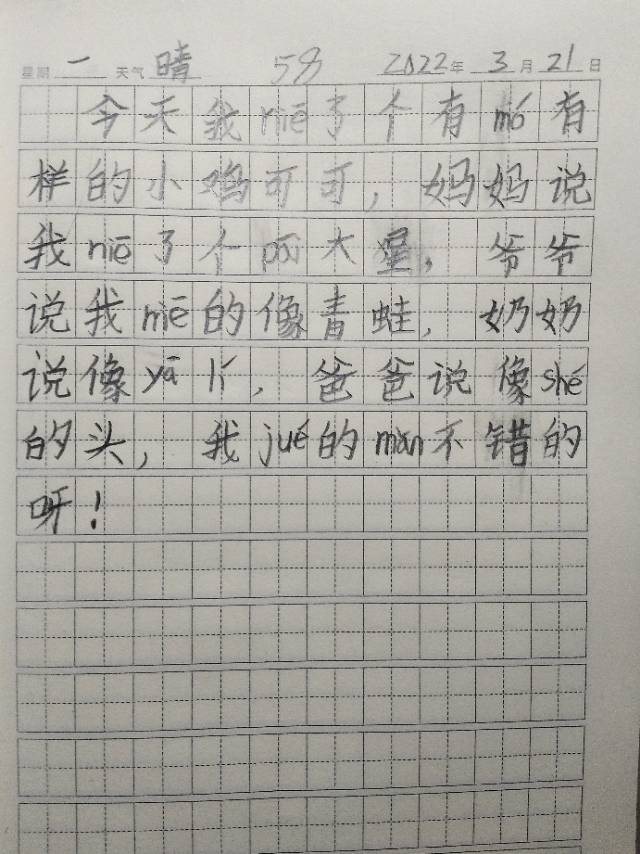 星期 一 天气 晴 58 2022年 3月21日
今天我niē了个有mó有
样的小鸡可可，妈妈说
我niē了个pāi大星，爷爷
说我niē的像青蛙，奶奶
说像yā lí，爸爸说像shé
的头，我jué的mǎn不错的
呀！